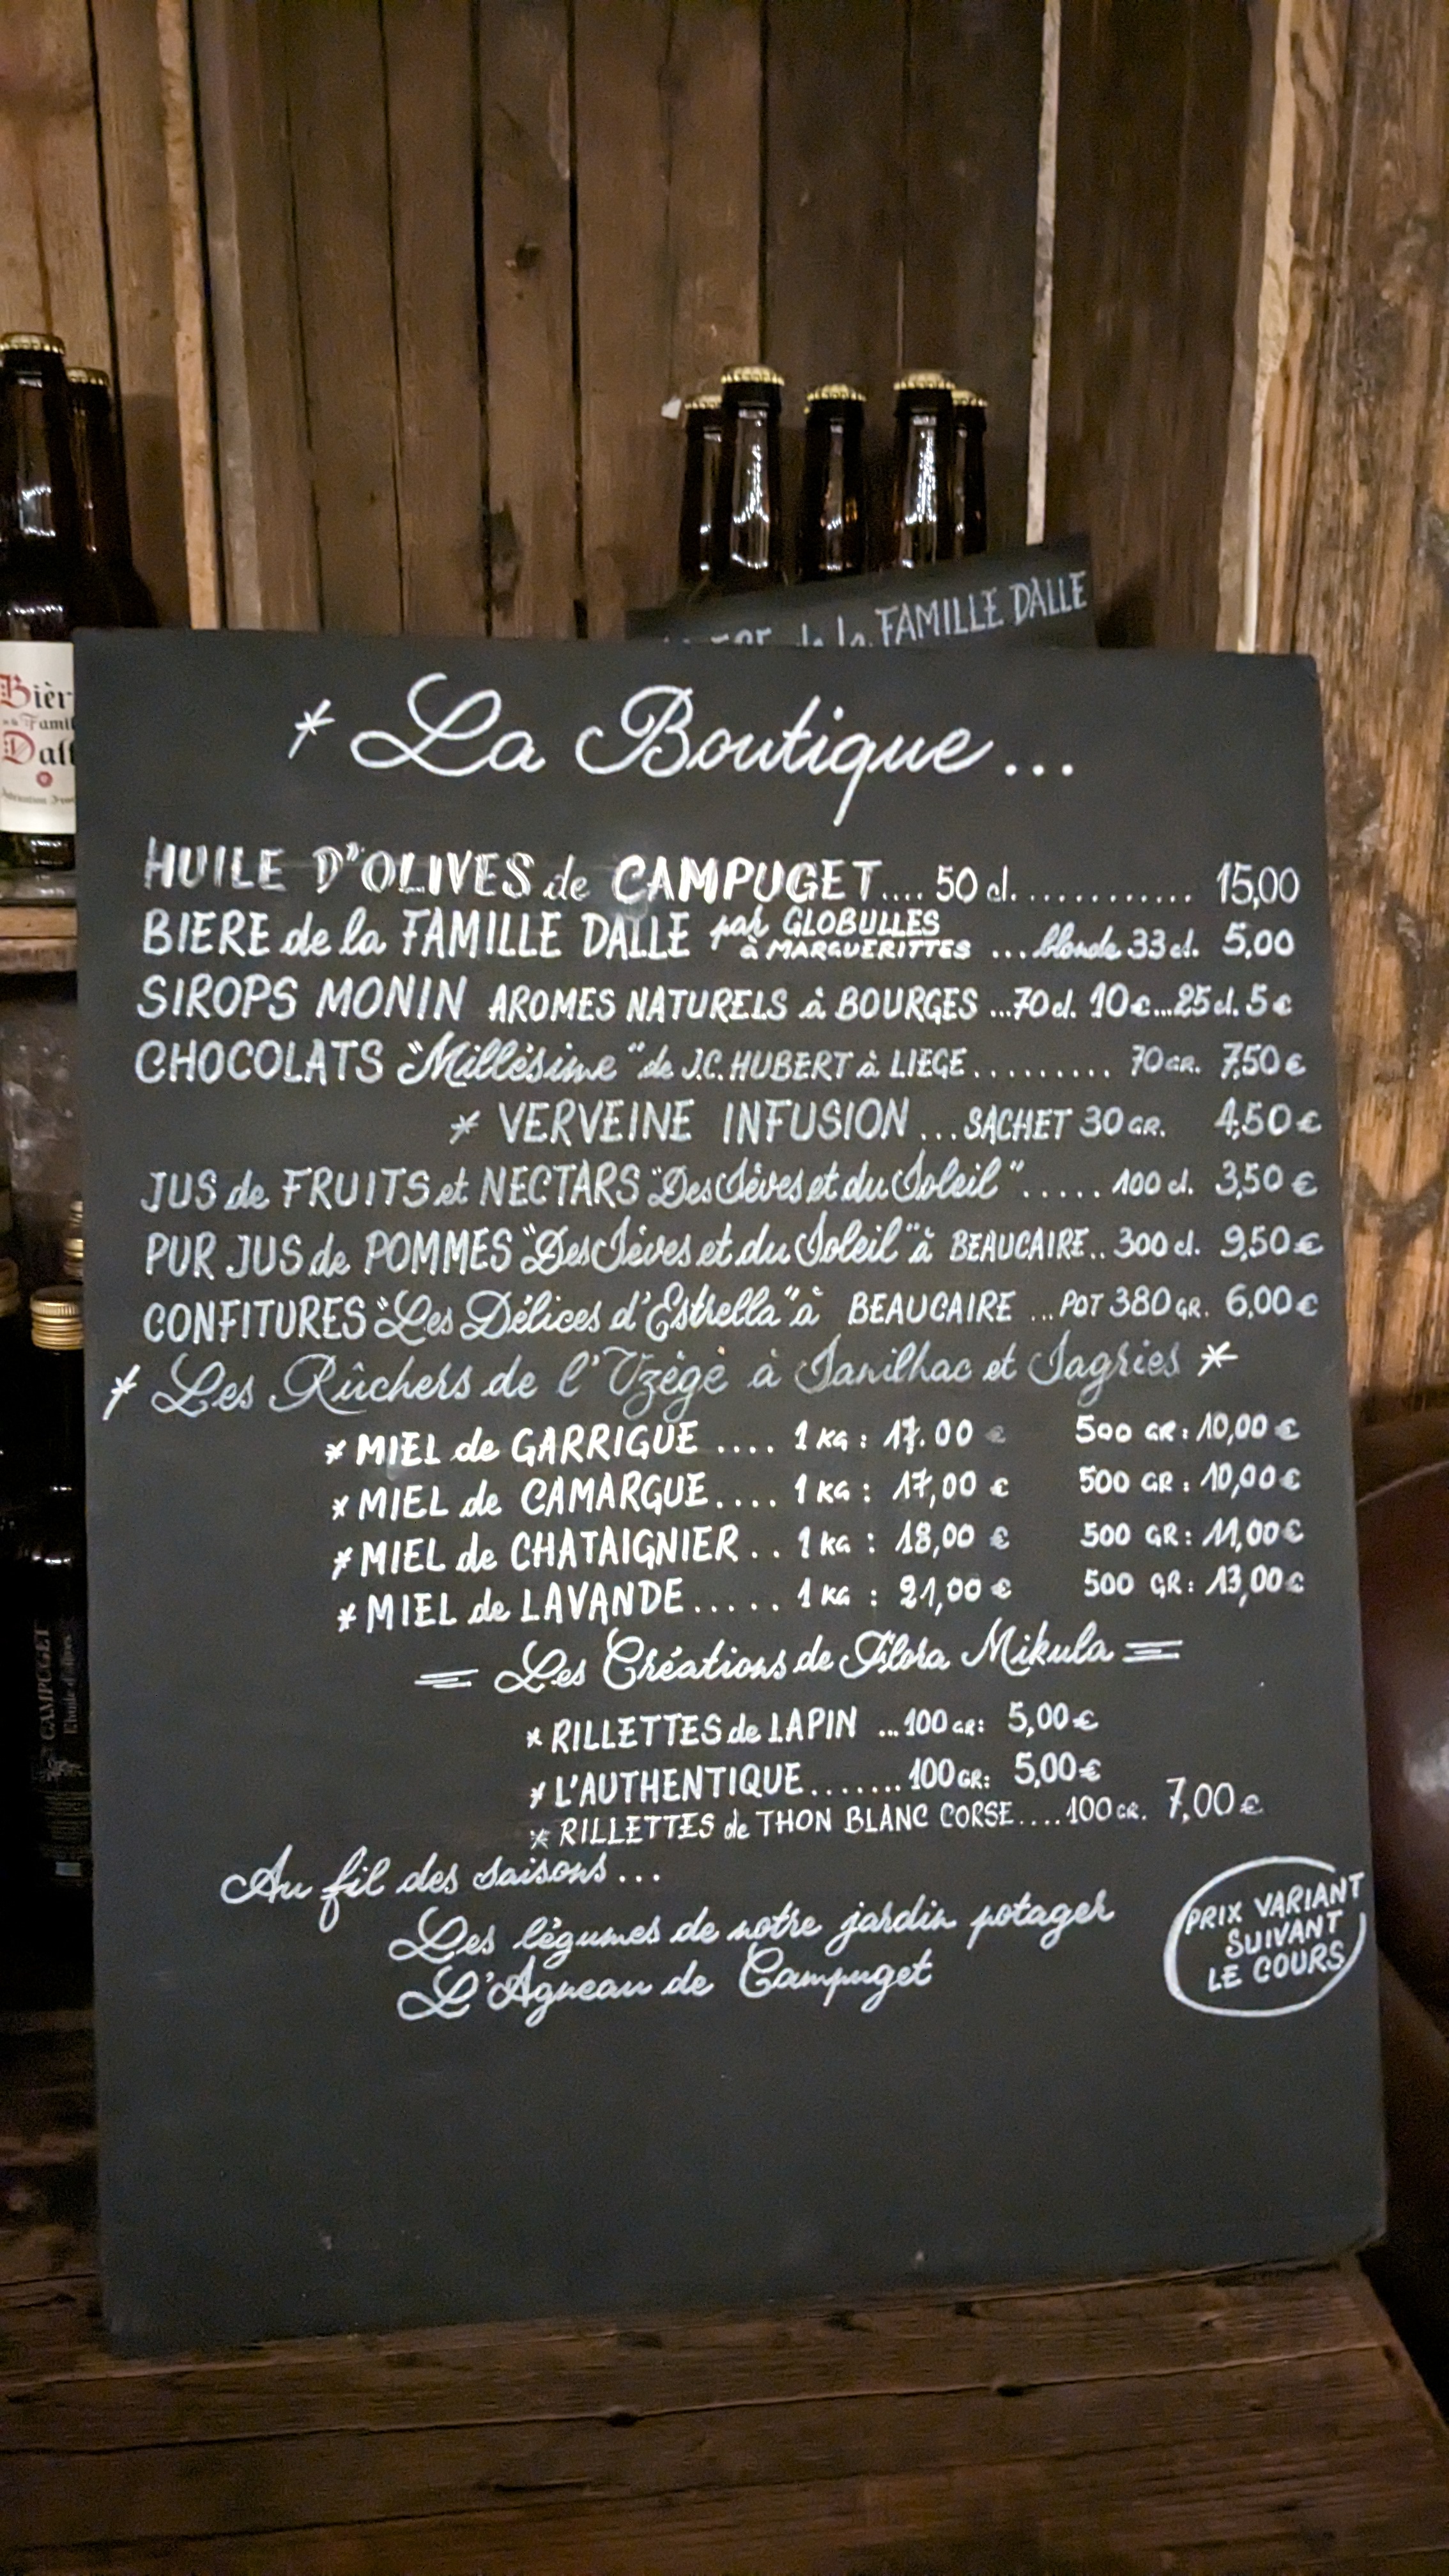 FAMILLE DALLE
Bièr
Famil
Dall
* La Boutique...
HUILE D'OLIVES de CAMPUGET.... 50 cl............. 15,00
BIERE de la FAMILLE DALLE par GLOBULLES à MARGUERITTES ...blonde 33 cl. 5,00
SIROPS MONIN AROMES NATURELS à BOURGES ...70 cl. 10 €...25 cl. 5 €
CHOCOLATS "Millésime" de J.C. HUBERT à LIEGE......... 70 GR. 7,50 €
* VERVEINE INFUSION ...SACHET 30 GR. 4,50 €
JUS de FRUITS et NECTARS "Des Sèves et du Soleil"..... 100 cl. 3,50 €
PUR JUS de POMMES "Des Sèves et du Soleil" à BEAUCAIRE.. 300 cl. 9,50 €
CONFITURES "Les Délices d'Estrella" à BEAUCAIRE ...POT 380 GR. 6,00 €
* Les Rûchers de l'Uzège à Sanilhac et Sagries *
* MIEL de GARRIGUE .... 1 KG : 17.00 € 500 GR : 10,00 €
* MIEL de CAMARGUE.... 1 KG : 17,00 € 500 GR : 10,00 €
* MIEL de CHATAIGNIER .. 1 KG : 18,00 € 500 GR : 11,00 €
* MIEL de LAVANDE..... 1 KG : 21,00 € 500 GR : 13,00 €
= Les Créations de Flora Mikula =
* RILLETTES de LAPIN ...100 GR: 5,00 €
* L'AUTHENTIQUE....... 100 GR: 5,00 €
* RILLETTES de THON BLANC CORSE....100 GR. 7,00 €
Au fil des saisons...
Les légumes de notre jardin potager
L'Agneau de Campuget
PRIX VARIANT
SUIVANT
LE COURS
CAMPUGET